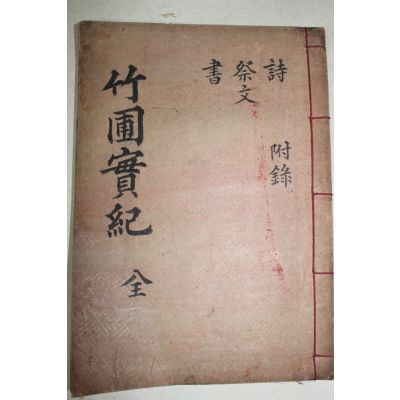 詩
附錄
祭文
書
竹圃實紀
全